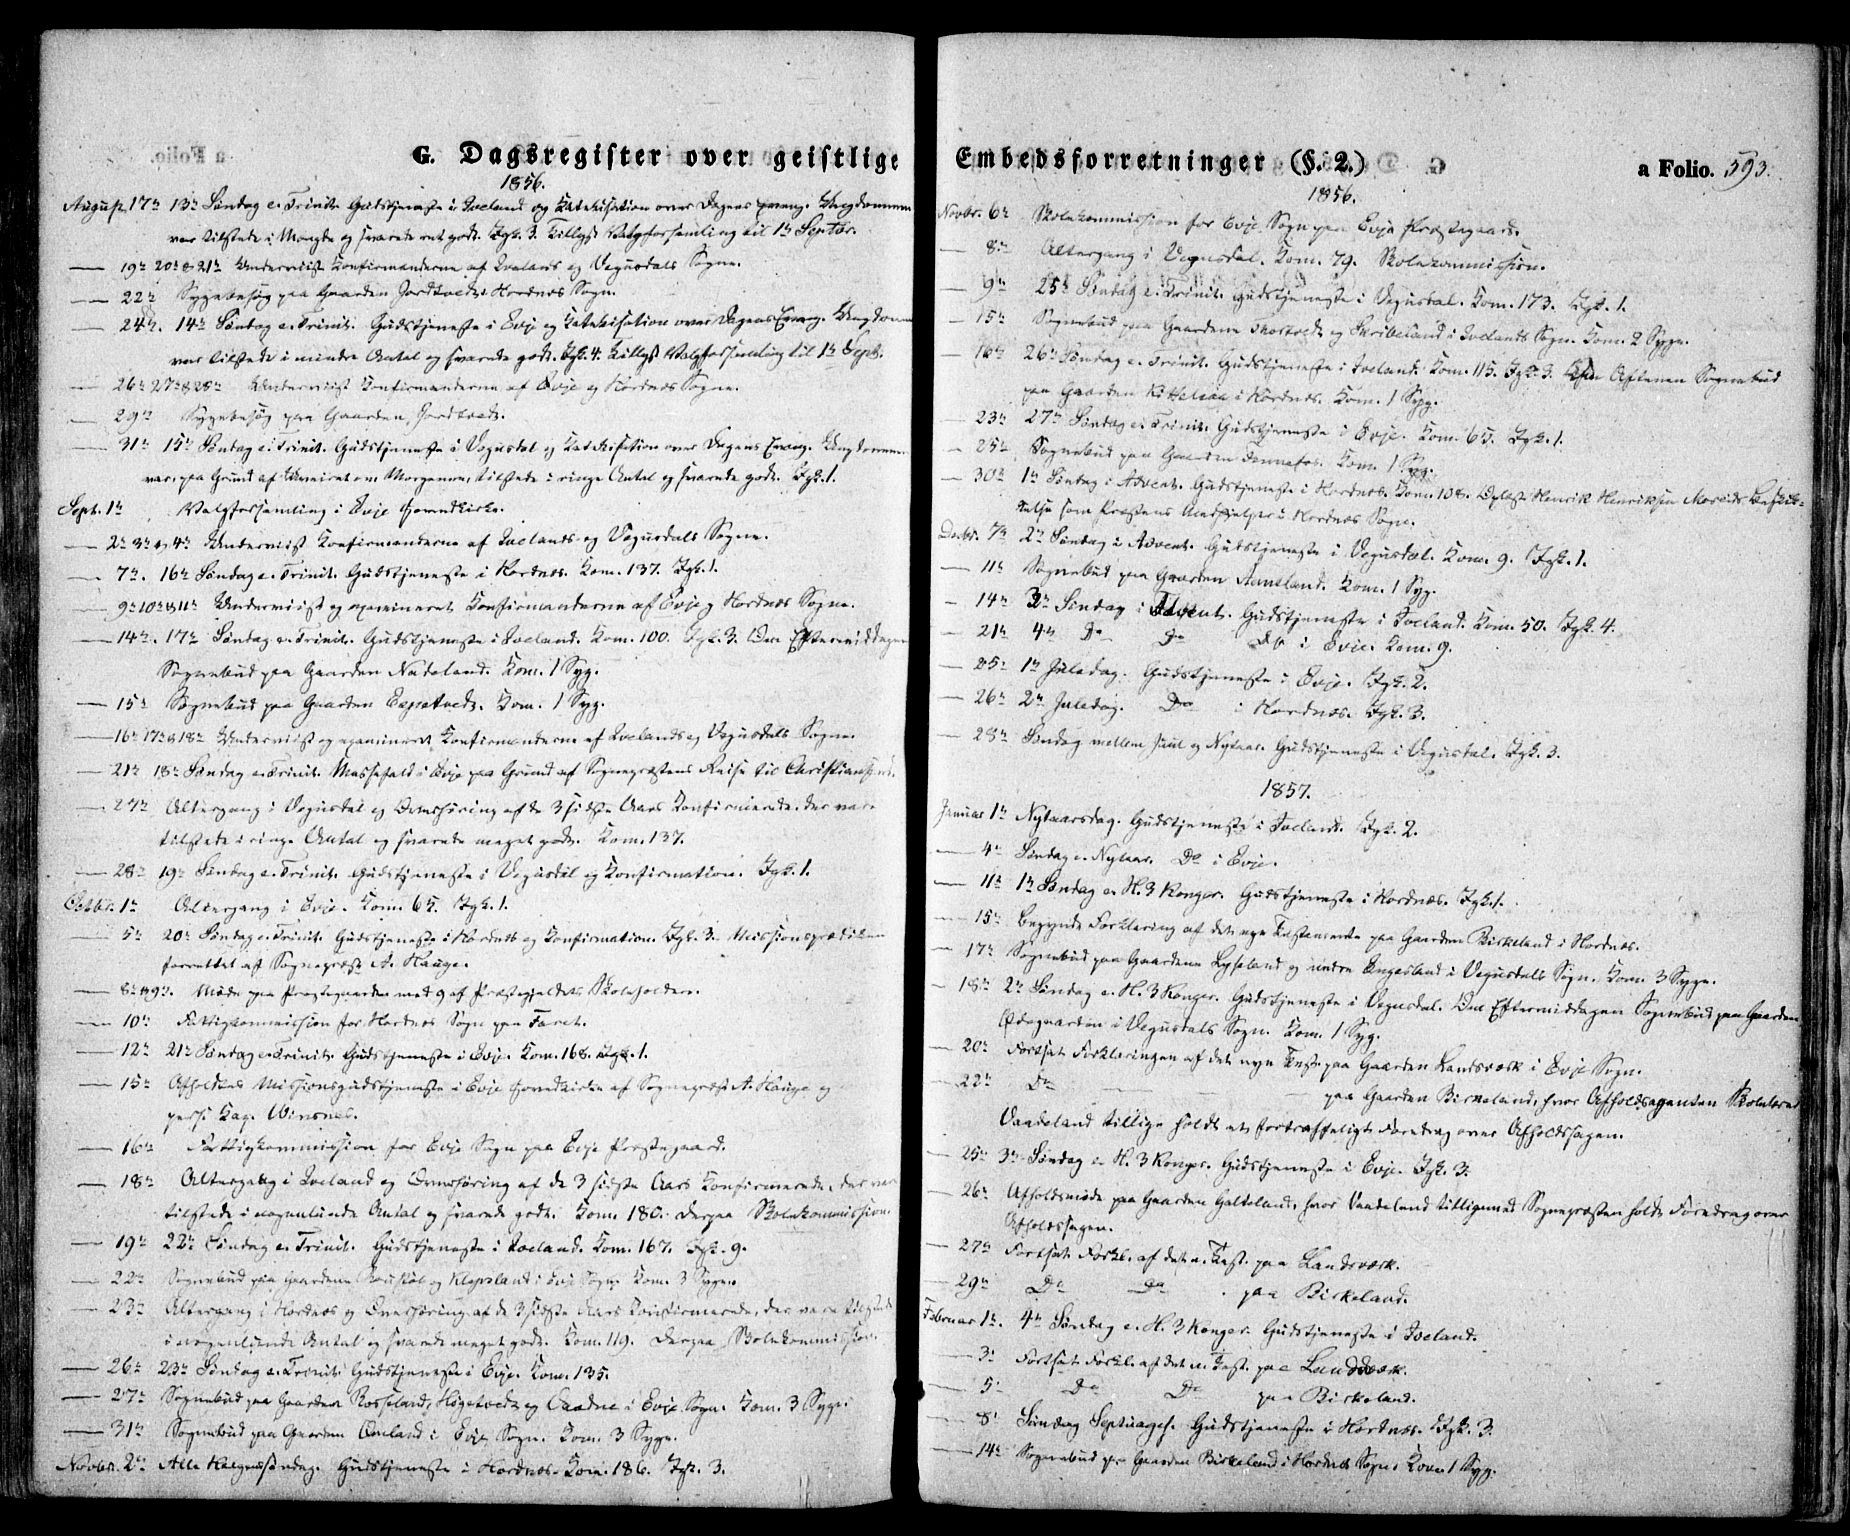 G. Dagsregister over geistlige
1856.
August 17de 13de Søndag e. Trinit. Gudstjeneste i Iveland og Katekisation over Dagens Evang. Ungdommen
var tilstede i Mængde og svarede ret godt. Tgk. 3. Tillyst Valgforsamling til 1ste Septbr.
— 19de 20de & 21de Underviist Konfirmanderne af Ivelands og Vegusdals Sogne.
— 22de Sygebesøg paa Gaarden Jordtveds Hordnæs Sogn.
— 24de 14de Søndag e. Trinit. Gudstjeneste i Evje og Katekisation over Dagens Evang. Ungdommen
var tilstede i mindre Antal og svarede godt. Tgk. 4. Tillyst Valgforsamling til 1ste Septb.
— 26de 27de & 28de Underviist Konfirmanderne af Evje og Hordnæs Sogne.
— 29de Sygebesøg paa Gaarden Jordtveds.
— 31te 15de Søndag e. Trinit. Gudstjeneste i Vegusdal og Katekisation over Dagens Evang. Ungdommen
var, paa Grund af Uveiret om Morgenen, tilstede i ringe Antal og svarede godt. Tgk. 1.
Septb. 1ste Valgforsamling i Evje Hovedkirke.
— 2de 3de og 4de Underviist Konfirmanderne af Ivelands og Vegusdals Sogne.
— 7de. 16de Søndag e. Trinit. Gudstjeneste i Hordnæs. Kom. 137. Tgk. 1.
— 9de 10de & 11te Underviist og examineret Konfirmanderne af Evje og Hordnæs Sogne.
— 14de. 17de Søndag e. Trinit. Gudstjeneste i Iveland. Kom. 100. Tgk. 3. Om Eftermiddagen
Sognebud paa Gaarden Nateland. Kom. 1 Syg.
— 15de Sognebud paa Gaarden Espetveds. Kom. 1 Syg.
— 16de 17de & 18de Underviist og examineret Konfirmanderne af Ivelands og Vegusdals Sogne.
— 21de 18de Søndag e. Trinit. Messefald i Evje paa Grund af Sognepræstens Reise til Christianssand.
— 27de Altergang i Vegusdal og Overhøring af de 3 sidste Aars Konfirmerede, der vare
tilstede i ringe Antal og svarede meget godt. Kom. 137.
— 28de 19de Søndag e. Trinit. Gudstjeneste i Vegusdal og Konfirmation. Tgk. 1.
Octbr. 1ste Altergang i Evje. Kom. 65. Tgk. 1.
— 5te 20de Søndag e. Trinit. Gudstjeneste i Hordnæs og Konfirmation. Tgk. 3. Missionsprædiken
forrettet af Sognepræst A. Hauge.
— 8de & 9de. Møde paa Præstegaarden med 9 af Præstegjeldets Skoleholdere.
— 10de Fattigkommission for Hordnæs Sogn paa Faret.
— 12te 21de Søndag e. Trinit. Gudstjeneste i Evje. Kom. 168. Tgk. 1.
— 15de Afholdtes Missionsgudstjeneste i Evje Hovedkirke af Sognepræst A. Hauge og
pers. Kap. Winsnes.
— 16de Fattigkommission for Evje Sogn paa Evje Præstegaard.
— 18de Altergang i Iveland og Overhøring af de 3 sidste Aars Konfirmerede, der var
tilstede i nogenlunde Antal og svarede godt. Kom. 180. Derpaa Skolekommission.
— 19de 22de Søndag e. Trinit. Gudstjeneste i Iveland. Kom. 167. Tgk. 9.
— 22de Sognebud paa Gaardene og Klepsland i Evje Sogn. Kom. 3 Syge.
— 23de Altergang i Hordnæs og Overhøring af de 3 sidste Aars Konfirmerede, der vare tilstede
i nogenlunde Antal og svarede meget godt. Kom. 119. Derpaa Skolekommission.
— 26de 23de Søndag e. Trinit. Gudstjeneste i Evje. Kom. 135.
— 27de Sognebud paa Gaardene Rosseland, Høgetveds og Aadne i Evje Sogn. Kom. 3 Syge.
— 31te Sognebud paa Gaarden Omland i Evje Sogn. Kom. 3 Syge.
Novbr. 2den Alle Helgenssøndag. Gudstjeneste i Hordnæs. Kom. 186. Tgk. 3.
Embedsforretninger (§. 2.)
a Folio. 593.
1856.
Novbr. 6te Skolekommission for Evje Sogn paa Evje Præstegaard.
— 8de Altergang i Vegusdal. Kom. 79. Skolekommission.
— 9de 25de Søndag e. Trinit. Gudstjeneste i Vegusdal. Kom. 173. Tgk. 1.
— 15de Sognebud paa Gaardene Thortveds og Skribeland i Ivelands Sogn. Kom. 2 Syge.
— 16de 26de Søndag e. Trinit. Gudstjeneste i Iveland. Kom. 115. Tgk. 3. Om Aftenen Sognebud
paa Gaarden Kittelsaa i Hordnæs. Kom. 1 Syg.
— 23de 27de Søndag e. Trinit. Gudstjeneste i Evje. Kom. 65. Tgk. 1.
— 25de Sognebud paa Gaarden Fennefos. Kom. 1 Syg.
— 30te 1ste Søndag i Advent. Gudstjeneste i Hordnæs. Kom. 108. Oplæste Henrik Henriksen Moseids Beskik-
kelse som Præstens Medhjelper i Hordnæs Sogn.
Decbr. 7de 2den Søndag i Advent. Gudstjeneste i Vegusdal. Kom. 9. Tgk. 1.
— 11te Sognebud paa Gaarden Aaneland. Kom. 1 Syg.
— 14de 3de Søndag i Advent. Gudstjeneste i Iveland. Kom. 50. Tgk. 4.
— 21de 4de Do Do Do i Evje. Kom. 9.
— 25de 1ste Juledag. Gudstjeneste i Evje. Tgk. 2.
— 26de 2den Juledag. Do i Hordnæs. Tgk. 3.
— 28de Søndag mellem Juul og Nytaar. Gudstjeneste i Vegusdal. Tgk. 3.
1857.
Januar 1ste Nytaarsdag. Gudstjeneste i Iveland. Tgk. 2.
— 4de Søndag e. Nytaar. Do i Evje.
— 11te 1ste Søndag e. H. 3 Konger. Gudstjeneste i Hordnæs. Tgk. 1.
— 15de Begyndte Forklaring af det nye Testamente paa Gaarden Birkeland i Hordnæs.
— 17de Sognebud paa Gaardene Lyseland og nedre Engesland i Vegusdals Sogn. Kom. 3 Syge.
— 18de 2den Søndag e. H. 3 Konger. Gudstjeneste i Vegusdal. Om Eftermiddagen Sognebud paa Gaarden
Ødegaarden i Vegusdals Sogn. Kom. 1 Syg.
— 20de Fortsat Forklaringen af det nye Test. paa Gaarden Landsværk i Evje Sogn.
— 22de Do — — paa Gaarden Birkeland, hvor Afholdsagenten Skolelærer
Vandeland tillige holdt et fortræffeligt Foredrag over Afholdssagen.
— 25de 3de Søndag e. H. 3 Konger. Gudstjeneste i Evje. Tgk. 3.
— 26de Afholdsmøde paa Gaarden Galteland, hvor Vandeland tilligemed Sognepræsten holdt Foredrag over
Afholdssagen.
— 27de Fortsat Forkl. af det n. Test. paa Landsværk.
— 29de Do Do . paa Birkeland.
Februar 1ste. 4de Søndag e. H. 3 Konger. Gudstjeneste i Iveland.
— 3de Fortsat Forkl. af det n. Test. paa Landsværk.
— 5te Do Do paa Birkeland.
— 8de Søndag Septuages. Gudstjeneste i Hordnæs. Tgk. 3.
— 14de Sognebud paa Gaarden Birkeland i Hordnæs Sogn. Kom. 1 Syg.